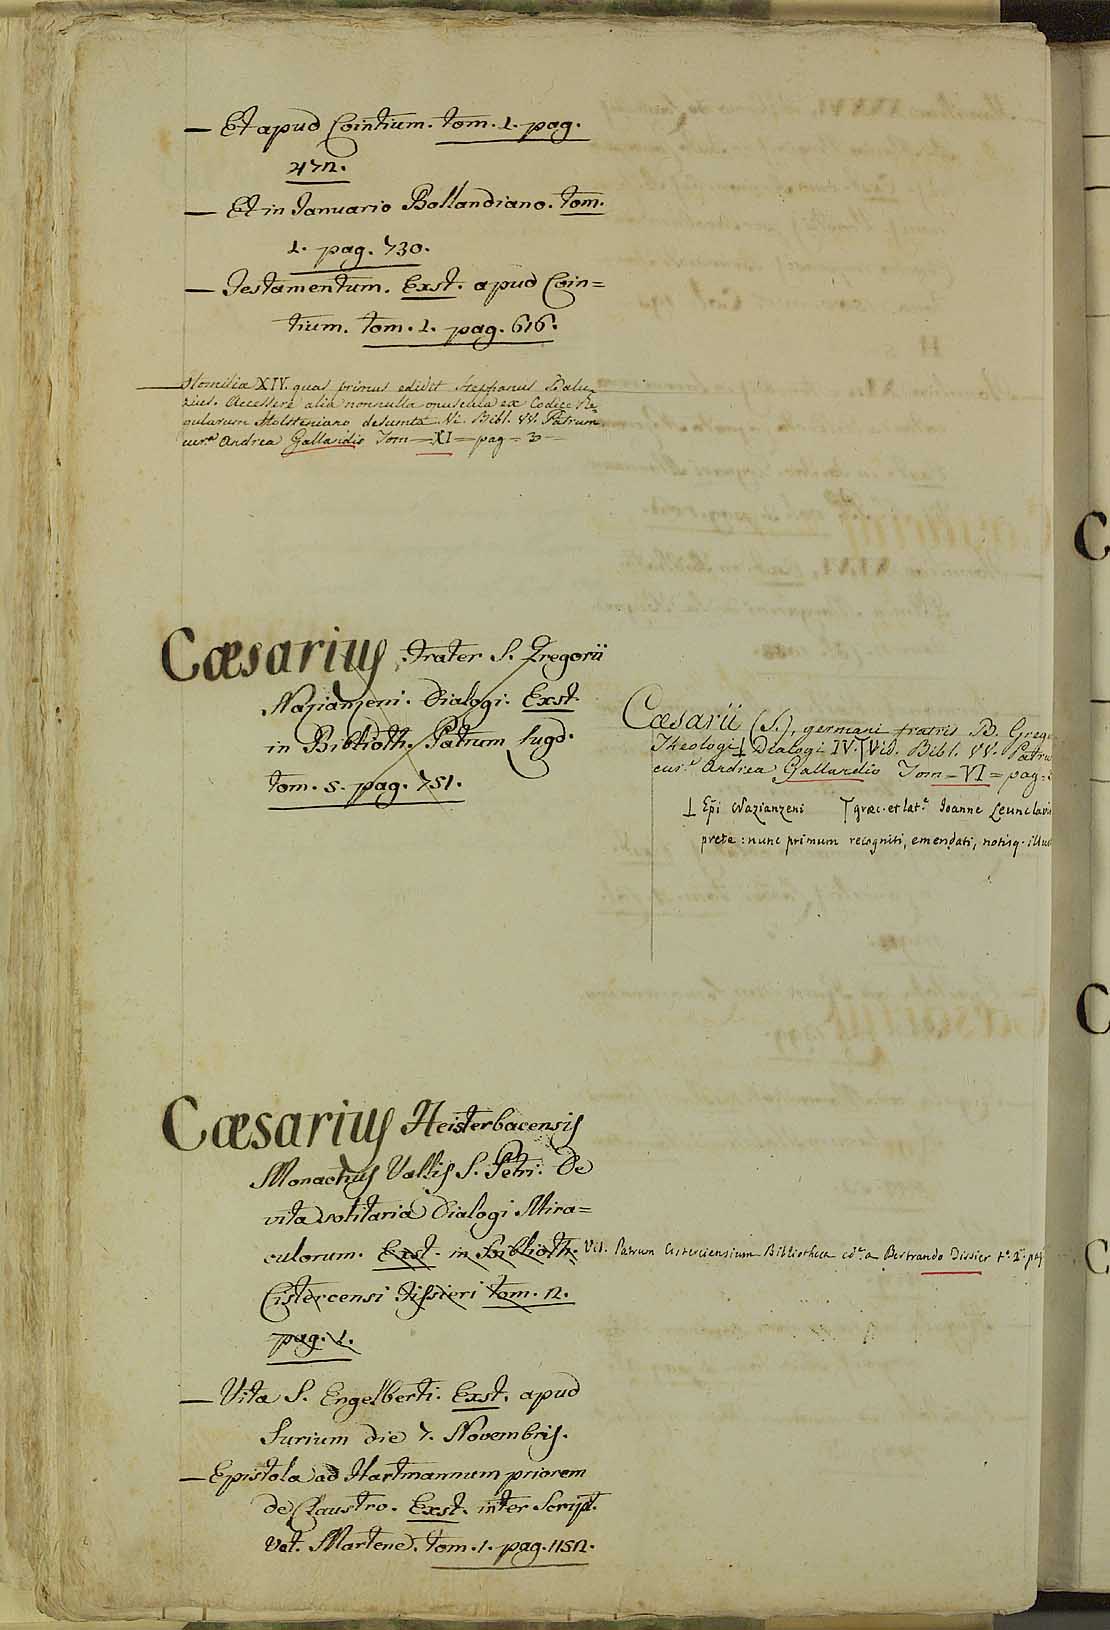 — Et apud Cointium. tom. 1. pag.
472.
— Et in Januario Bollandiano. tom.
1. pag. 730.
— Testamentum. Exst. apud Coin=
tium. tom. 1. pag. 616.
— Homiliæ XIV. quas primus edidit Stephanus Balu=
zius. Accessere alia nonnulla opuscula ex Codice Re=
gularum Holsteniano desumta. Vi. Bibl. VV. Patrum
cur.e Andrea Gallandio Tom — XI — pag = 3 —
Cæsarius, frater S. Gregorii
Nazianzeni. Dialogi. Exst.
in Biblioth. Patrum Lugd.
tom. 5. pag. 751.
Cæsarii (S.), germani fratris B. Grego
Theologi ⊥ Dialogi IV. ⊤ Vid. Bibl. VV. Patru
cur.e Andrea Gallandio Tom — VI = pag =
⊥ Epi Nazianzeni ⊤ græc. et lat.e Joanne Leunclavio
prete : nunc primum recogniti, emendati, notisq. illus
Cæsarius Heisterbacensis
Monachus Vallis S. Petri. De
vita solitaria Dialogi Mira=
culorum. Exst. in Biblioth.
Cistercensi Tissieri tom. 2.
pag. 1.
Vid. Patrum Cisterciensium Bibliotheca ed.e a Bertrando Dissier t.o 2.o pag
— Vita S. Engelberti. Exst. apud
Surium die 7. Novembris.
— Epistola ad Hartmannum priorem
de Claustro. Exst. inter Script.
Vet. Martene. tom. 1. pag. 1152.
C
C
C